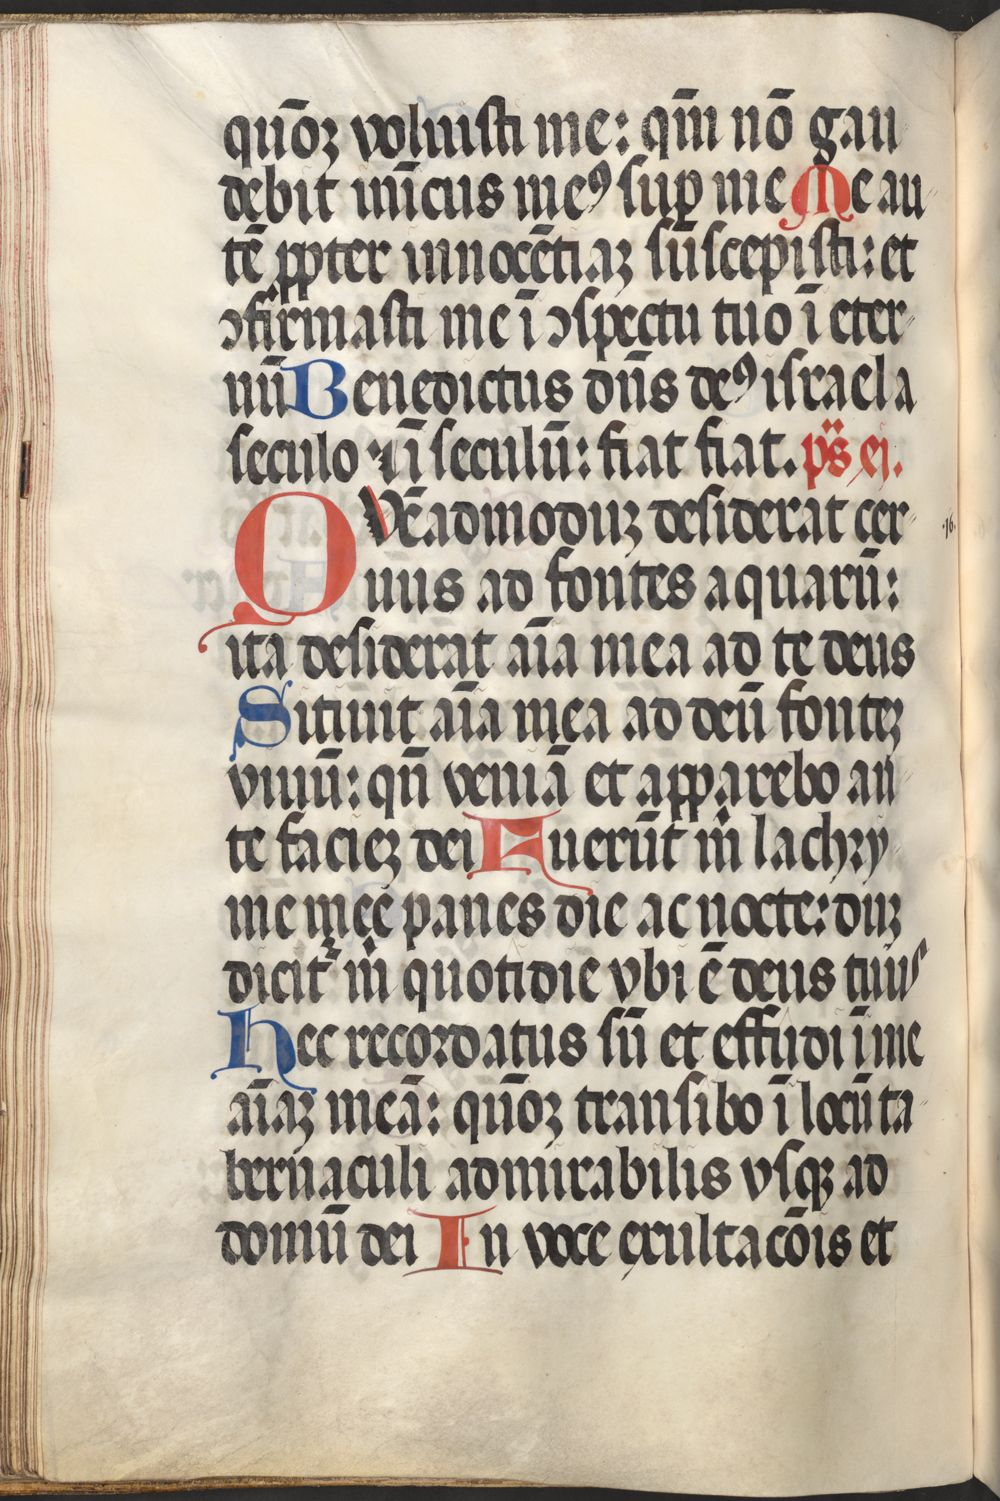 quōꝫ voluisti me: qm̄ nō gau
debit inīcus meꝰ suꝑ me Me au
tē ꝓpter innocētiaꝫ sūscepisti: et
ↄfirmasti me ī ↄspectu tuo ī eter
nū Benedictus dn̄s deꝰ israel a
seculo ⁊ ī seculū: fiat fiat. ps̄
QVēadmoduꝫ desiderat cer
uus ad fontes aquarū:
ita desiderat aīa mea ad te deus
Sitiuit aīa mea ad deū fonteꝫ
viuū: qn̄ veniā et apparebo an
te facieꝫ dei Fuerūt m̄ lachry
me mee panes die ac nocte: duꝫ
dicit᷑ m̄ quotidie vbi ē deus tuus
Hec recordatus sū et effudi ī me
aīaꝫ meā: quōꝫ transibo ī locū ta
bernaculi admirabilis vsqꝫ ad
domū dei In voce exultacōis et
·16·